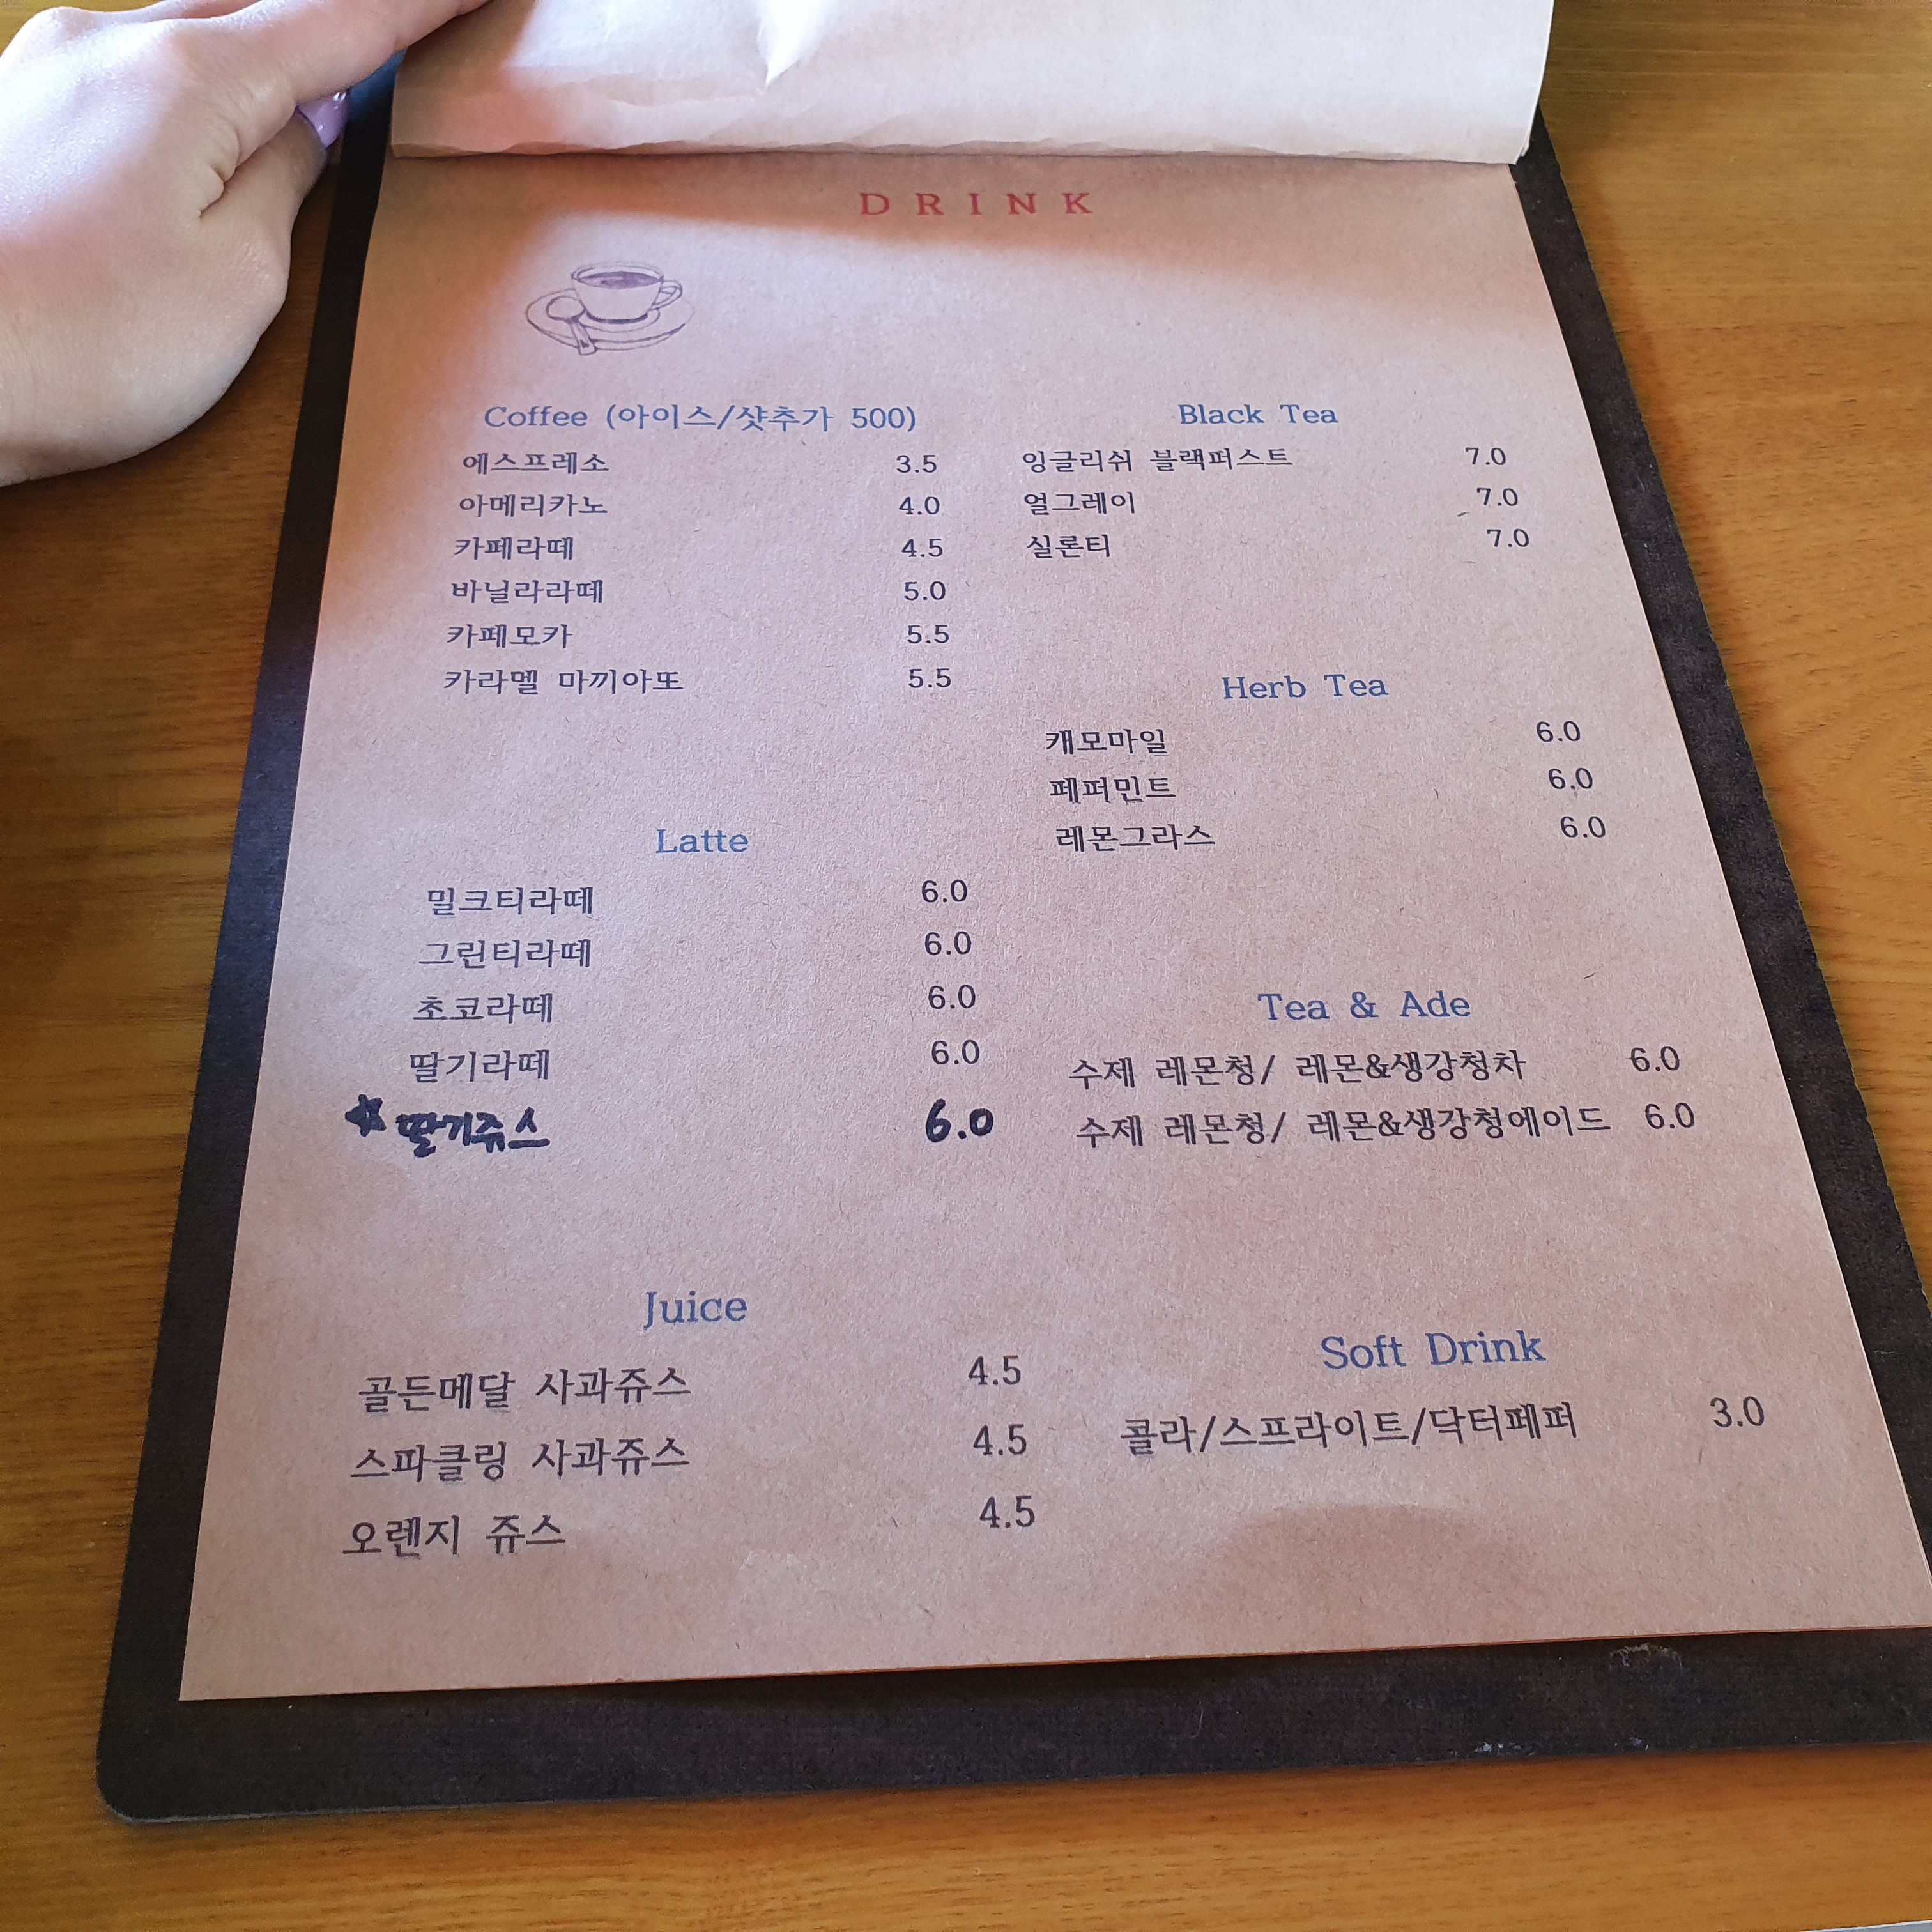 DRINK
Coffee (아이스/샷추가 500)
에스프레소 3.5
아메리카노 4.0
카페라떼 4.5
바닐라라떼 5.0
카페모카 5.5
카라멜 마끼아또 5.5
Latte
밀크티라떼 6.0
그린티라떼 6.0
초코라떼 6.0
딸기라떼 6.0
딸기쥬스 6.0
Juice
골든메달 사과쥬스 4.5
스파클링 사과쥬스 4.5
오렌지 쥬스 4.5
Black Tea
잉글리쉬 블랙퍼스트 7.0
얼그레이 7.0
실론티 7.0
Herb Tea
캐모마일 6.0
페퍼민트 6.0
레몬그라스 6.0
Tea & Ade
수제 레몬청/ 레몬&생강청차 6.0
수제 레몬청/ 레몬&생강청에이드 6.0
Soft Drink
콜라/스프라이트/닥터페퍼 3.0